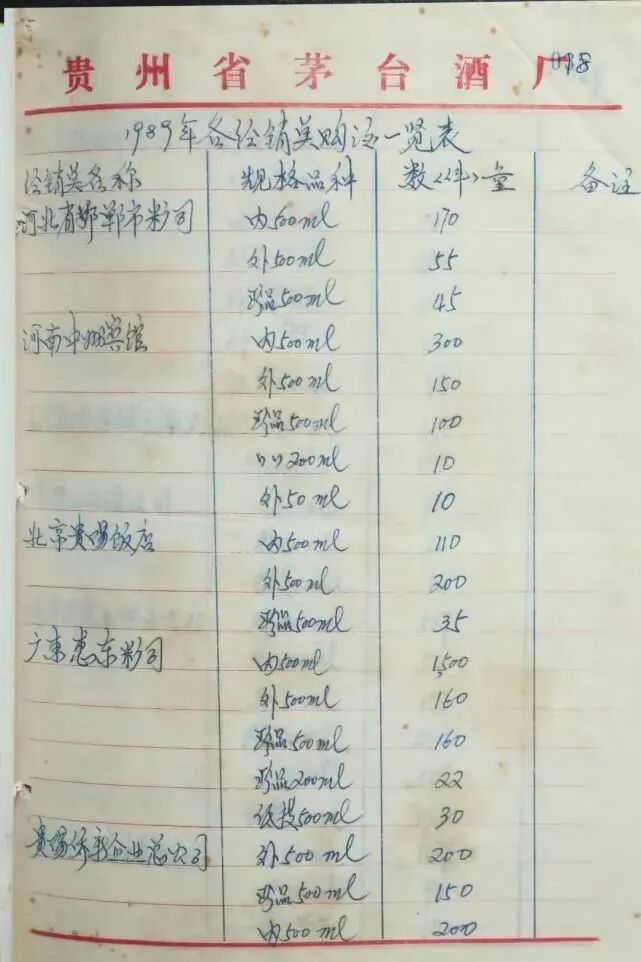 贵州省茅台酒厂
1989年各经销关购酒一览表
经销关名称 规格品种 数(件)量 备注
河北省邯郸市糖司 内500ml 170
外500ml 55
珍品500ml 45
河南中州宾馆 内500ml 300
外500ml 150
珍品500ml 100
〃〃200ml 10
外50ml 10
北京贵阳饭店 内500ml 110
外500ml 200
珍品500ml 35
广东惠东 司 内500ml 1500
外500ml 160
珍品500ml 160
珍品200ml 22
低度500ml 30
贵阳侨新企业总公司 外500ml 200
珍品500ml 150
内500ml 200